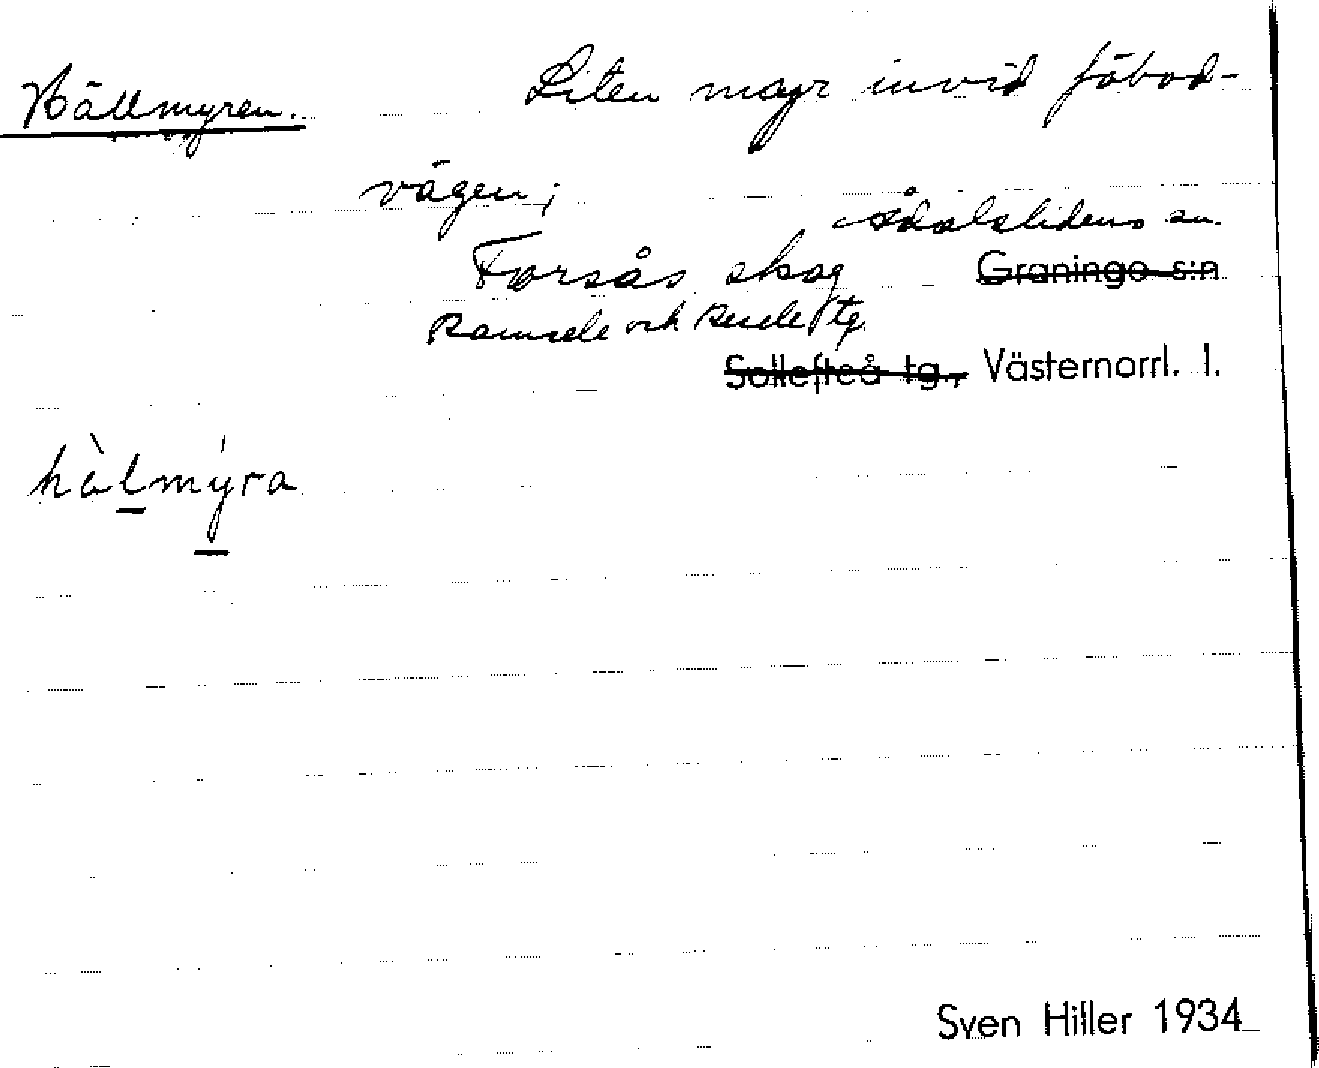 Hällmyren. Liten myr invid fäbod-
vägen;
Ådalslidens sn.
Forsås skog Graninge s:n
Ramsele och Resele tg.
Sollefteå tg., Västernorrl. l.
hàlmýra
Sven Hiller 1934